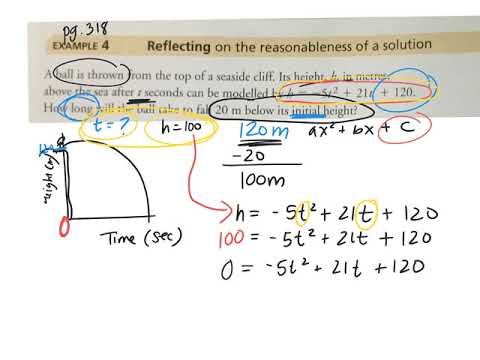 pg. 318
EXAMPLE 4 Reflecting on the reasonableness of a solution
A ball is thrown from the top of a seaside cliff. Its height, h, in metres,
above the sea after t seconds can be modelled by h = −5t² + 21t + 120.
How long will the ball take to fall 20 m below its initial height?
t = ? h = 100 120m ax² + bx + c
− 20
100m
Height (m)
0
Time (sec)
h = − 5t² + 21t + 120
100 = − 5t² + 21t + 120
0 = − 5t² + 21t + 120